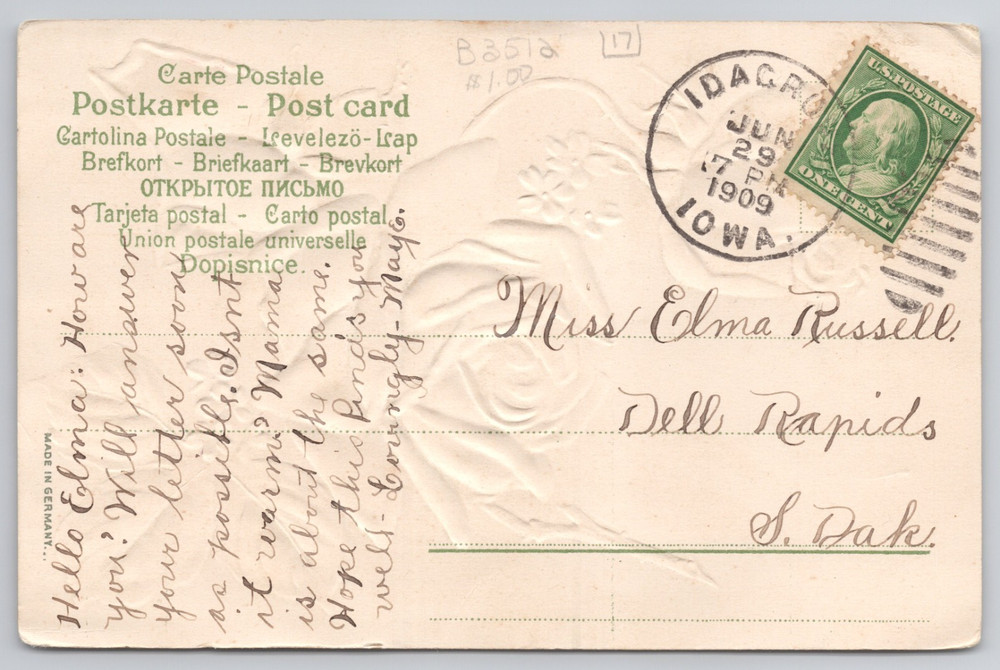 B3512
17
$1.00
Carte Postale
Postkarte - Post card
Cartolina Postale - Levelezö-Lap
Brefkort - Briefkaart - Brevkort
ОТКРЫТОЕ ПИСЬМО
Tarjeta postal - Carto postal
Union postale universelle
Dopisnice.
IDAGRO
JUN
29
7 PM
1909
IOWA.
U.S. POSTAGE
ONE CENT
Miss Elma Russell.
Dell Rapids
S. Dak.
Hello Elma: How are
you? Will answer
your letter soon
as possible. Isnt
it warm? Mama
is about the same.
Hope this finds you
well - Lovingly - Maye.
MADE IN GERMANY.